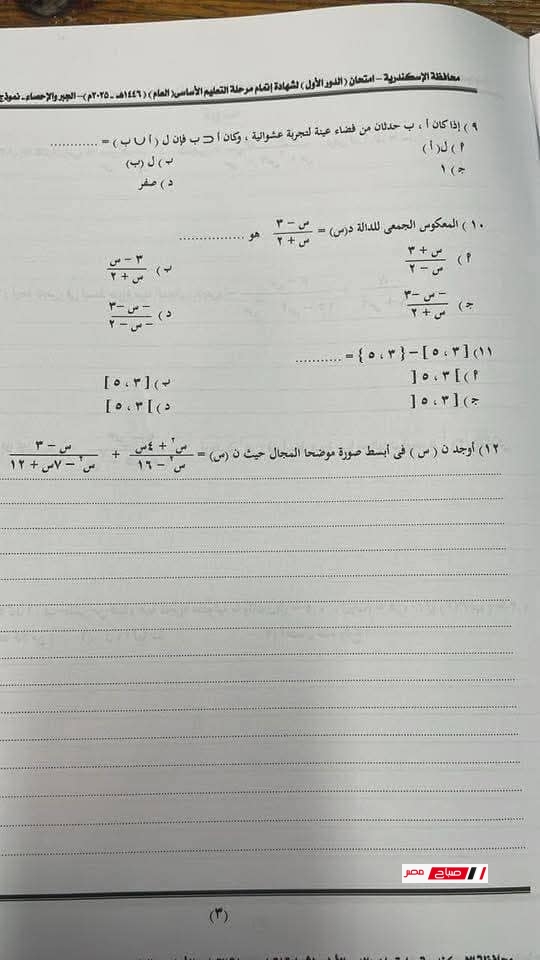 محافظة الإسكندرية – امتحان (الدور الأول) لشهادة إتمام مرحلة التعليم الأساسى (العام) (١٤٤٦هـ ـ ٢٠٢٥م) – الجبر والإحصاء ـ نموذج
٩) إذا كان أ ، ب حدثان من فضاء عينة لتجربة عشوائية ، وكان أ ⊂ ب فإن ل (أ ∪ ب) = ............
أ) ل(أ) ب) ل (ب)
ج) ١ د) صفر
١٠) المعكوس الجمعى للدالة د(س) = (س – ٣)/(س + ٢) هو ................
أ) (س + ٣)/(س – ٢) ب) (٣ – س)/(س + ٢)
ج) (– س –٣)/(س + ٢) د) (– س –٣)/(– س – ٢)
١١) [٣ ، ٥] – {٣ ، ٥} = ...........
أ) ]٣ ، ٥] ب) [٣ ، ٥]
ج) [٣ ، ٥[ د) ]٣ ، ٥[
١٢) أوجد ن (س) فى أبسط صورة موضحا المجال حيث ن (س) = (س٢ + ٤س)/(س٢ – ١٦) + (س – ٣)/(س٢ – ٧س + ١٢)
صباح مصر
(٣)